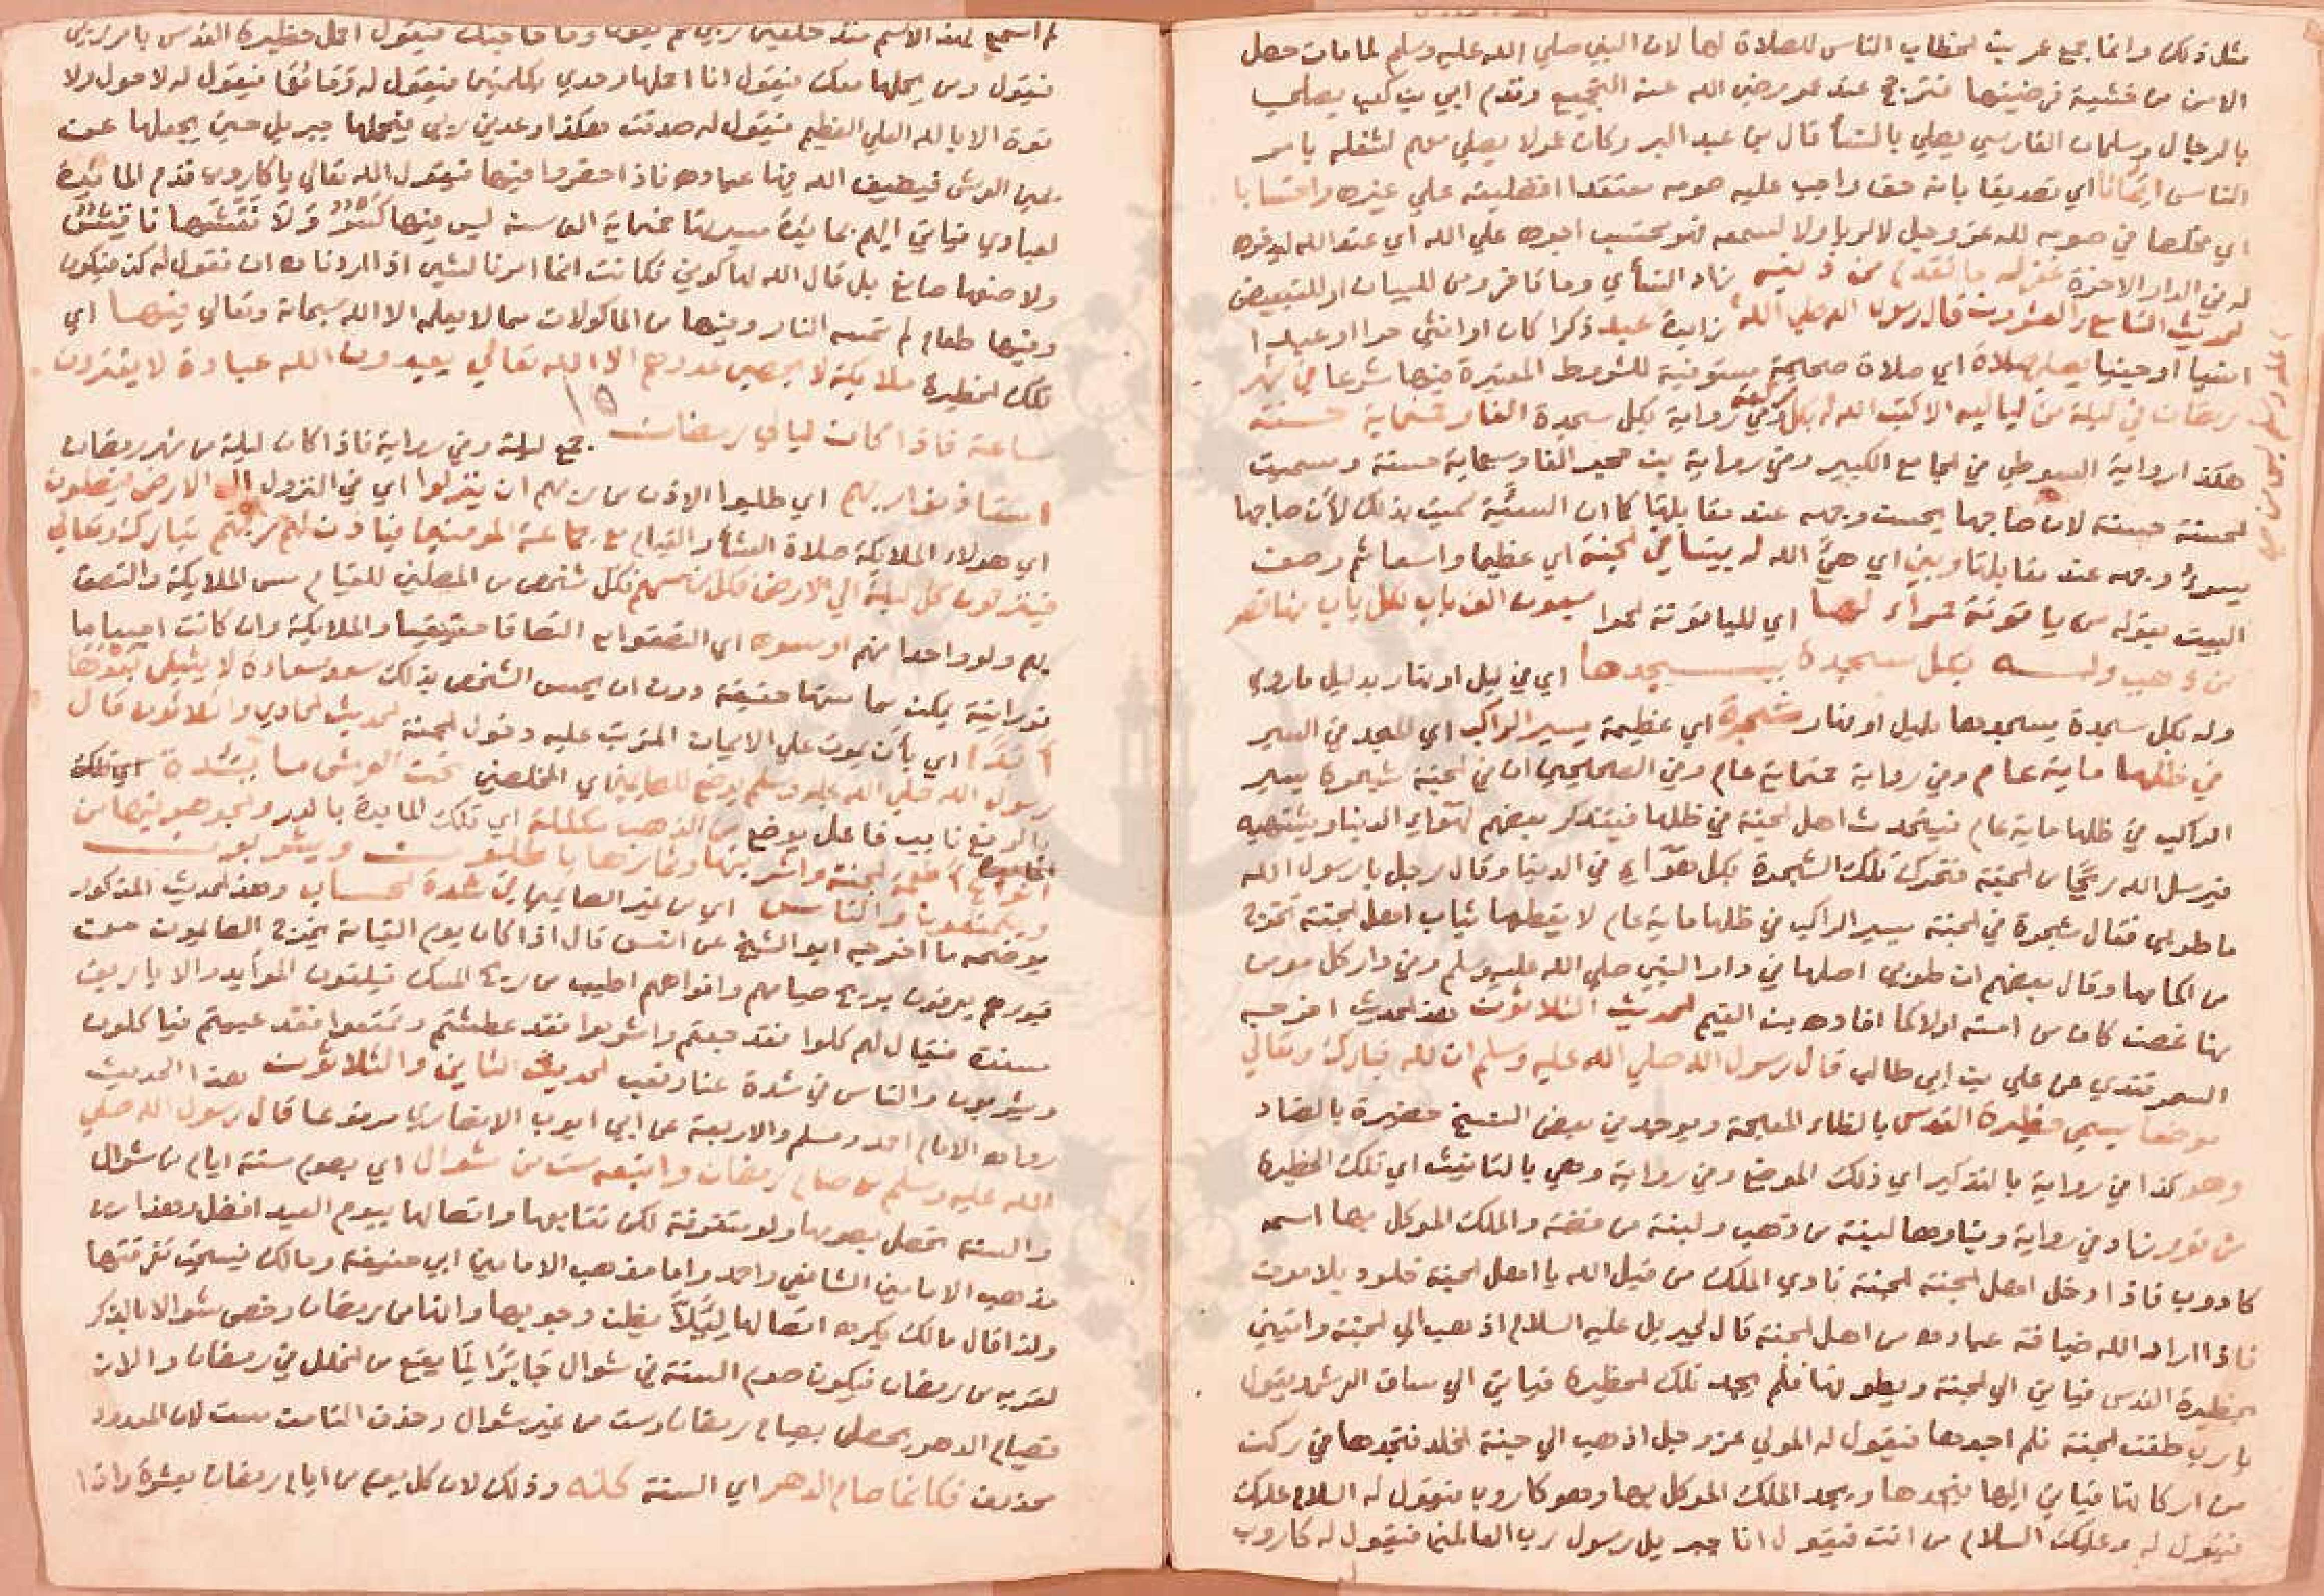 مثل ذلك وانما جمع عمر بن الخطاب الناس للصلاة لها لان النبي صلي الله عليه وسلم لما مات حصل
الامن من خشية فرضيتها فترجح عند عمر رضي الله عنه التجميع وقدم ابي بن كعب يصلي
بالرجال وسلمان الفارسي يصلي بالنسأ قال بن عبد البر وكان عمر لا يصلي معهم لشغله بامر
الناس ايمانا اي تصديقا بانه حق واجب عليه صومه معتقدا افضليته علي غيره واحتسابا
اي مخلصا في صومه لله عز وجل لا لريا ولا لسمعه فهو محتسب اجره علي الله اي عند الله يدخره
له في الدار الاخرة غفر له ما تقدم من ذنبه زاد النسأي وما تاخر ومن للبيان او للتبعيض
الحديث التاسع والعشرون قال رسول الله صلي الله زايدة عبد ذكرا كان او انثي حرا او عبدا
انسيا او جنيا يصلي صلاة اي صلاة صحيحة مستوفية للشروط المعتبرة فيها شرعا في شهر
رمضان في ليلة من لياليه الا كتب الله له بكل ركعة وفي رواية بكل سجدة الفا وخمسماية حسنة
هكذا رواية السيوطي في الجامع الكبير وفي رواية بن حجر الفا وسبعماية حسنة وسميت
الحسنة حسنة لان صاحبها يحسن وجهه عند مقابلتها كما ان السيئة سميت بذلك لأن صاحبها
يسوءُ وجهه عند مقابلتها وبني اي هيَّأ الله له بيتا في الجنة اي عظيما واسعا ثم وصف
البيت بقوله من ياقوتة حمرآء لها اي للياقوتة الحمرا سبعون الف باب لكل باب منها قصر
من ذهب وله بكل سجدة يسجدها اي في ليل او نهار بدليل ما روي
وله بكل سجدة يسجدها بليل او نهار شجرة اي عظيمة يسير الراكب اي المجد في السير
في ظلها ماية عام وفي رواية خمسماية عام وفي الصحيحين ان في الجنة شجرة يسير
الراكب في ظلها ماية عام فيتحدث اهل الجنة في ظلها فيتذكر بعضهم لهوآء الدنيا ويشتهيه
فيرسل الله ريحا من الجنة فتحرك تلك الشجرة بكل هوآء في الدنيا وقال رجل يا رسول الله
ما طوبي فقال شجرة في الجنة يسير الراكب في ظلها ماية عام لا يقطعها ثياب اهل الجنة تخرج
من اكمامها وقال بعضهم ان طوبي اصلها في دار النبي صلي الله عليه وسلم وفي دار كل مومن
منها غصن كان من امته او لا كما افاده بن القيم الحديث الثلاثون هذا الحديث اخرجه
السمرقندي عن علي بن ابي طالب قال رسول الله صلي الله عليه وسلم ان لله تبارك وتعالي
موضعا يسمي حظيرة القدس بالظاء المعجمة ويوجد في بعض النسخ حضيرة بالضاد
وهو كذا في رواية بالتذكير اي ذلك الموضع وفي رواية وهي بالتانيث اي تلك الحظيرة
من نور زاد في رواية وبناوها لبنة من ذهب ولبنة من فضة والملك الموكل بها اسمه
كاروب فاذا ادخل اهل الجنة الجنة نادي الملك من قبل الله يا اهل الجنة خلود بلا موت
فاذا اراد الله ضيافة عباده من اهل الجنة قال لجبريل عليه السلام اذهب الي الجنة واتيني
بحظيرة القدس فياتي الي الجنة ويطوفها فلم يجد تلك الحظيرة فياتي الي ساق العرش ويقول
يا رب طفت الجنة فلم اجدها فيقول له المولي عز وجل اذهب الي جنة الخلد فتجدها في ركن
من اركانها فياتي اليها فيجدها ويجد الملك الموكل بها وهو كاروب فيقول له السلام عليك
فيقول له وعليك السلام من انت فيقول انا جبريل رسول رب العالمين فيقول له كاروب
لم اسمع بهذا الاسم منذ خلقني ربي ثم يقول وما حاجتك فيقول احمل حظيرة القدس بامر ربي
فيقول ومن يحملها معك فيقول انا احملها وحدي بكلمتين فيقول له وما هما فيقول له لا حول ولا
قوة الا بالله العلي العظيم فيقول له صدقت هكذا وعدني ربي فيحملها جبريل حتي يجعلها عن
يمين العرش فيضيف الله فيها عباده فاذا احضروا فيها فيقول الله تعالي يا كاروب قدم المائدة
لعبادي فياتي اليهم بمايدة مسيرتها خمسماية الف سنة ليس فيها كسر ولا نقشها ناقش
ولا صنعها صانع بل قال الله لها كوني فكانت انما امرنا لشيء اذا اردناه ان نقول له كن فيكون
وفيها طعام لم تمسه النار وفيها من الماكولات مما لا يعلمه الا الله سبحانه وتعالي فيها اي
تلك الحظيرة ملايكة لا يحصي عددهم الا الله تعالي يعبدون الله عبادة لا يفترون
ساعة فاذا كانت ليالي رمضان جمع ليلة وفي رواية فاذا كان ليلة من شهر رمضان
استأذنوا ربهم اي طلبوا الاذن من ربهم ان ينزلوا اي في النزول الي الارض فيصلون
اي هولاء الملايكة صلاة العشأ والقيام مع جماعة المومنين فياذن لهم ربهم تبارك وتعالي
فينزلون كل ليلة الي الارض فكل من مسهم فكل شخص من المصلين للقيام مس الملايكة والتصق
بهم ولو واحدا منهم او مسوه اي التصقوا به التصاقا حقيقيا والملايكة وان كانت اجسامها
نورانية يمكن مماستها حقيقة دون ان يحس الشخص بذلك سعد سعادة لا يشقي بعدها
ابدا اي بأن يموت علي الايمان المترتب عليه دخول الجنة الحديث الحادي والثلاثون قال
رسول الله صلي الله عليه وسلم يوضع للصايمين اي المخلصين تحت العرش مايدة اي تلك
بالرفع نايب فاعل يوضع من الذهب مكللة اي تلك المايدة بالدر والجوهر فيها من
انواع اطعمة الجنة واشربتها وثمارها ياكلون ويشربون
ويتمتعون والناس اي من غير الصايمين في شدة الحساب وهذا الحديث المذكور
يوضحه ما اخرجه ابو الشيخ عن انس قال اذا كان يوم القيامة يخرج الصايمون من
قبورهم يعرفون بريح صيامهم وافواههم اطيب من ريح المسك فيلقون الموآيد والاباريق
فيقال لهم كلوا فقد جعتم واشربوا فقد عطشتم وتمتعوا فقد عييتم فياكلون
ويشربون والناس في شدة عنا وتعب الحديث الثاني والثلاثون هذا الحديث
رواه الامام احمد ومسلم والاربعة عن ابي ايوب الانصاري مرفوعا قال رسول الله صلي
الله عليه وسلم من صام رمضان واتبعه ست من شوال اي بصوم ستة ايام من شوال
والسنة تحصل بصومها ولو متفرقة لكن تتابعها واتصالها بيوم العيد افضل وهذا من
مذهب الامامين الشافعي واحمد واما مذهب الامامين ابي حنيفة ومالك فيستحب تفرقتها
ولذا قال مالك يكره اتصالها لئلا يظن وجوبها والناس رمضان وخص شوالا بالذكر
لقربه من رمضان فيكون صوم الستة في شوال جابرا لما يقع من الخلل في رمضان والا ان
فصيام الدهر يحصل بصيام رمضان وست من غير شوال وحذف التا من ست لان المعدود
محذوف فكانما صام الدهر اي السنة كله وذلك لان كل يوم من ايام رمضان بعشرة واذا